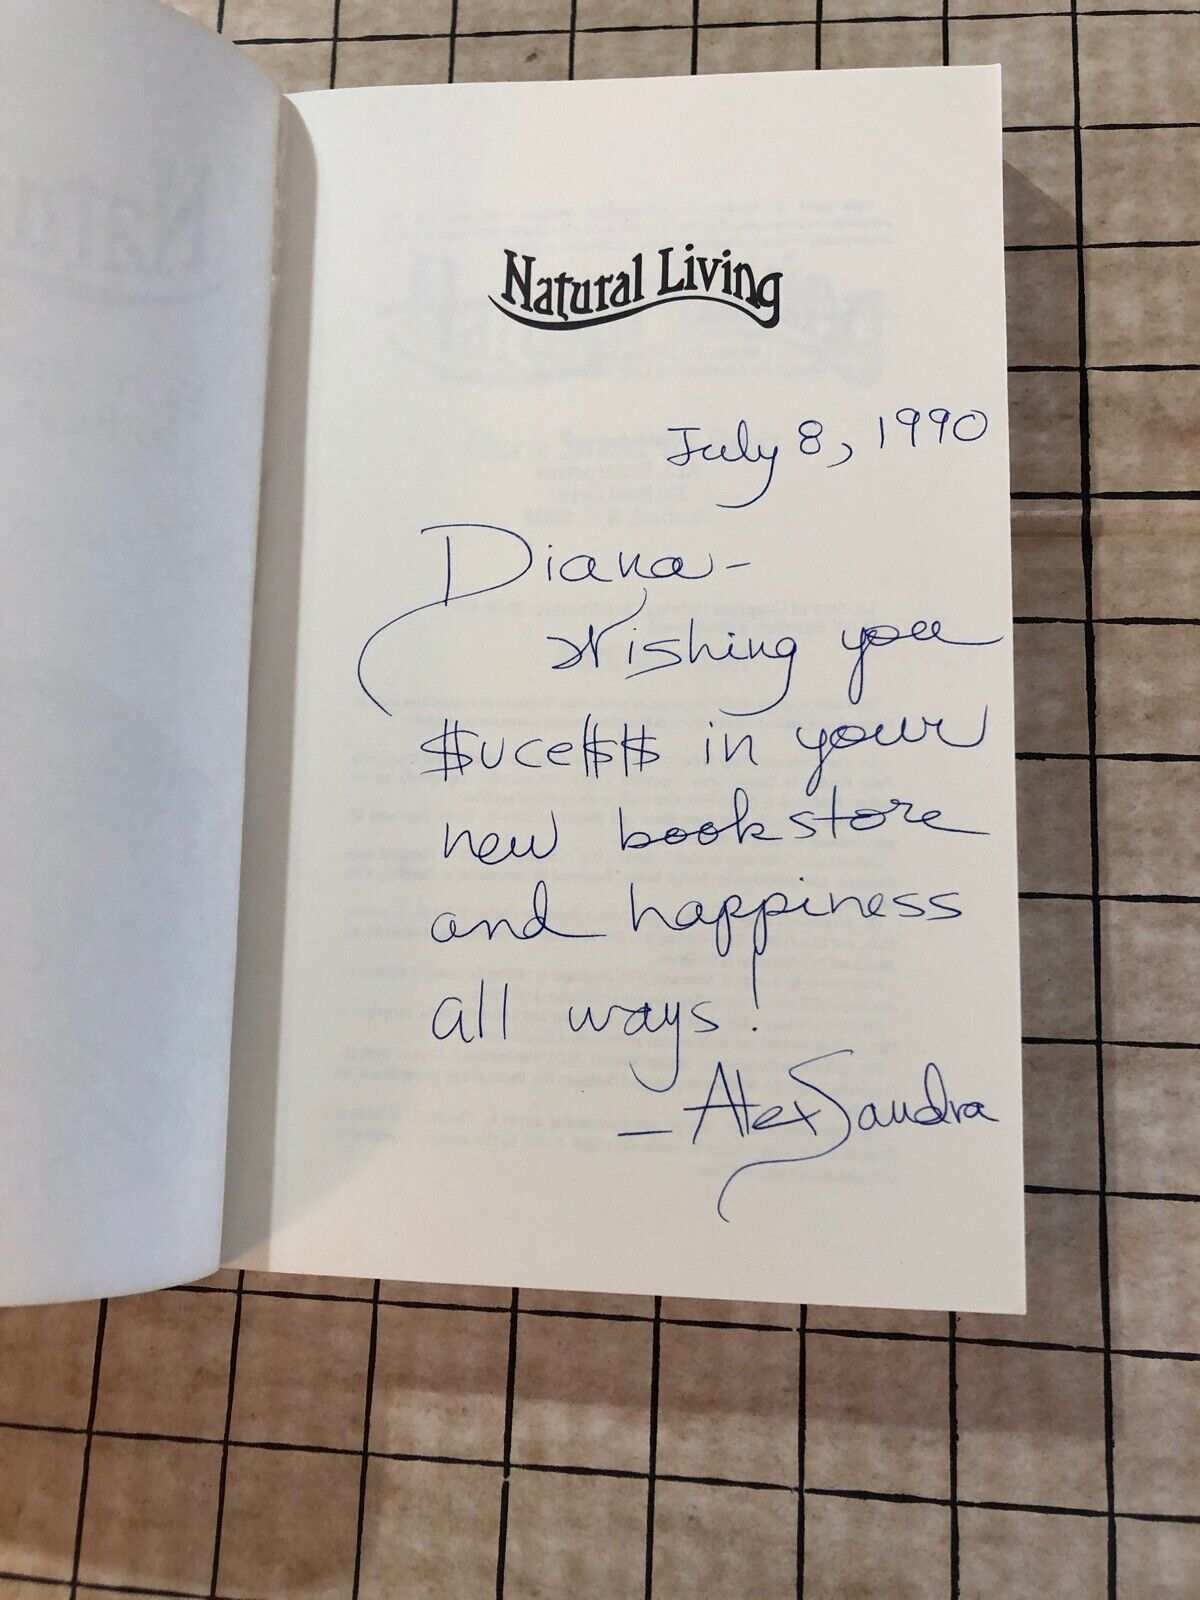 Natural Living
July 8, 1990
Diana-
Wishing you
$uce$$ in your
new bookstore
and happiness
all ways!
- AlexSandra